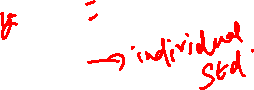 =
→ individual
std.